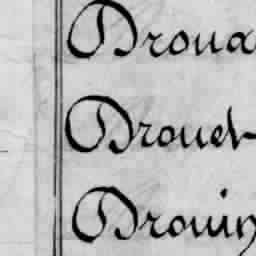 Droua
Drouet
Drouin